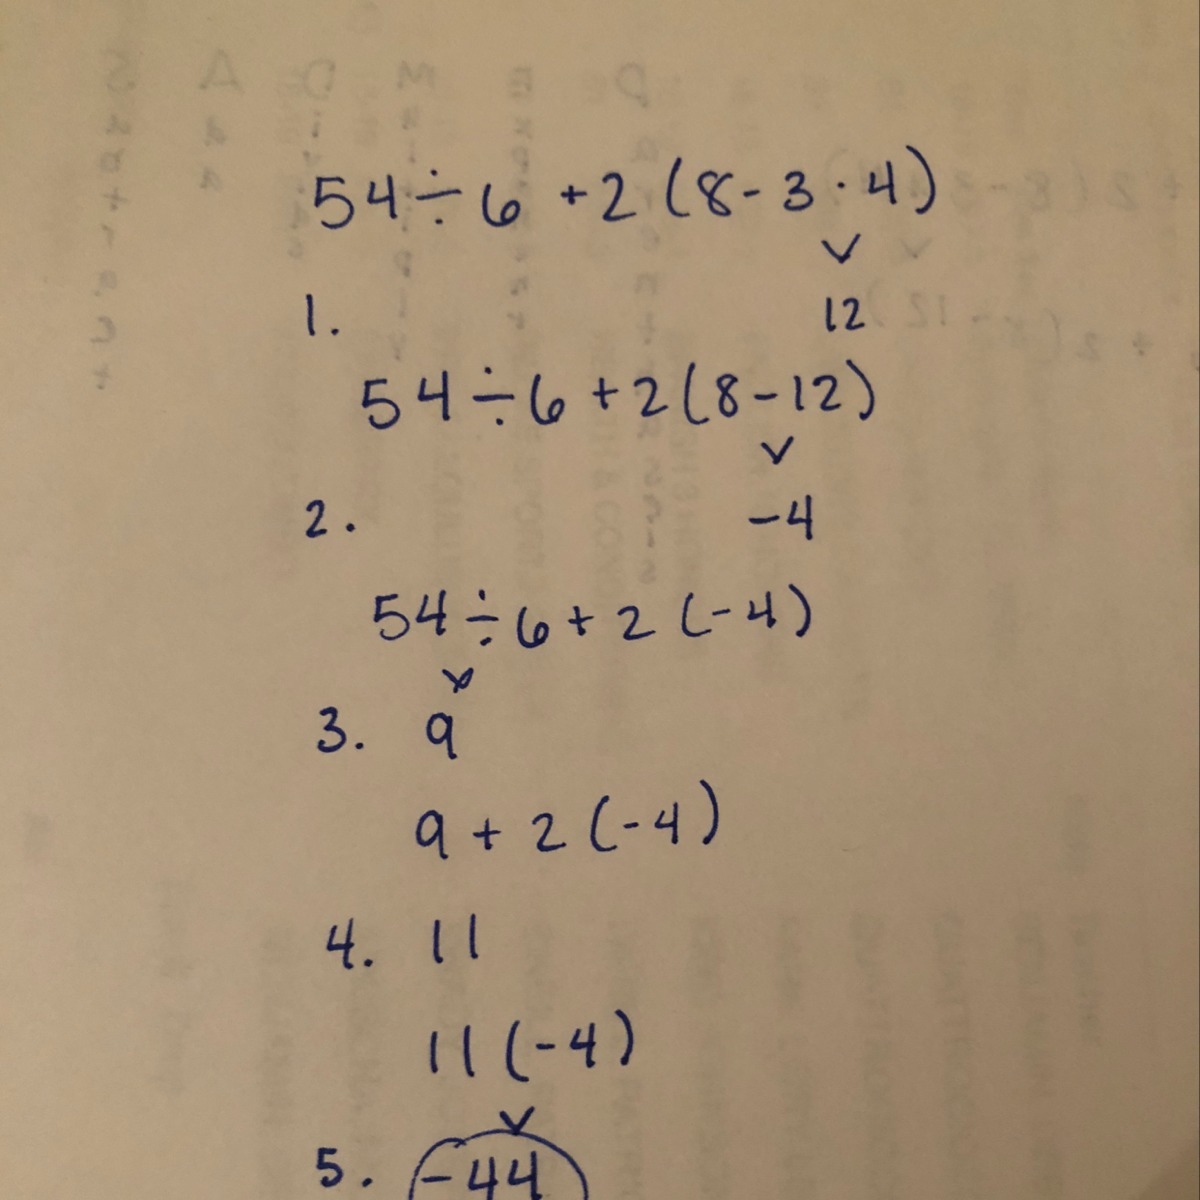 54 ÷ 6 + 2 (8 - 3 · 4)
1. 12
54 ÷ 6 + 2 (8 - 12)
2. -4
54 ÷ 6 + 2 (-4)
3. 9
9 + 2 (-4)
4. 11
11 (-4)
5. -44